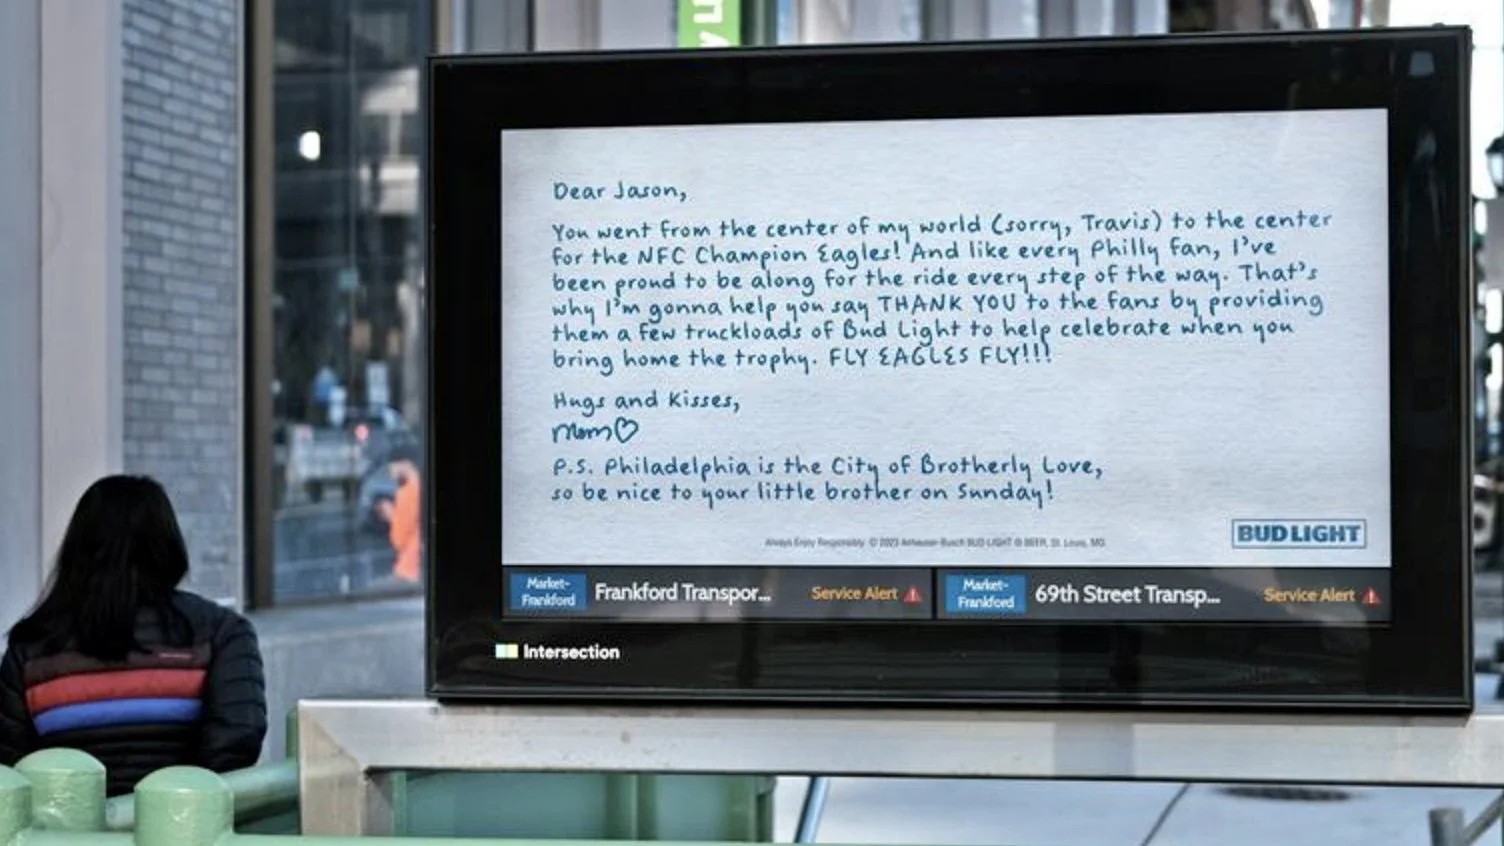 Dear Jason,
You went from the center of my world (sorry, Travis) to the center
for the NFC Champion Eagles! And like every Philly fan, I've
been proud to be along for the ride every step of the way. That's
why I'm gonna help you say THANK YOU to the fans by providing
them a few truckloads of Bud Light to help celebrate when you
bring home the trophy. FLY EAGLES FLY!!!
Hugs and Kisses,
Mom♡
P.S. Philadelphia is the City of Brotherly Love,
so be nice to your little brother on Sunday!
BUD LIGHT
Always Enjoy Responsibly. © 2023 Anheuser-Busch BUD LIGHT ® BEER, St. Louis, MO
Market-
Frankford
Frankford Transpor...
Service Alert
Market-
Frankford
69th Street Transp...
Service Alert
Intersection